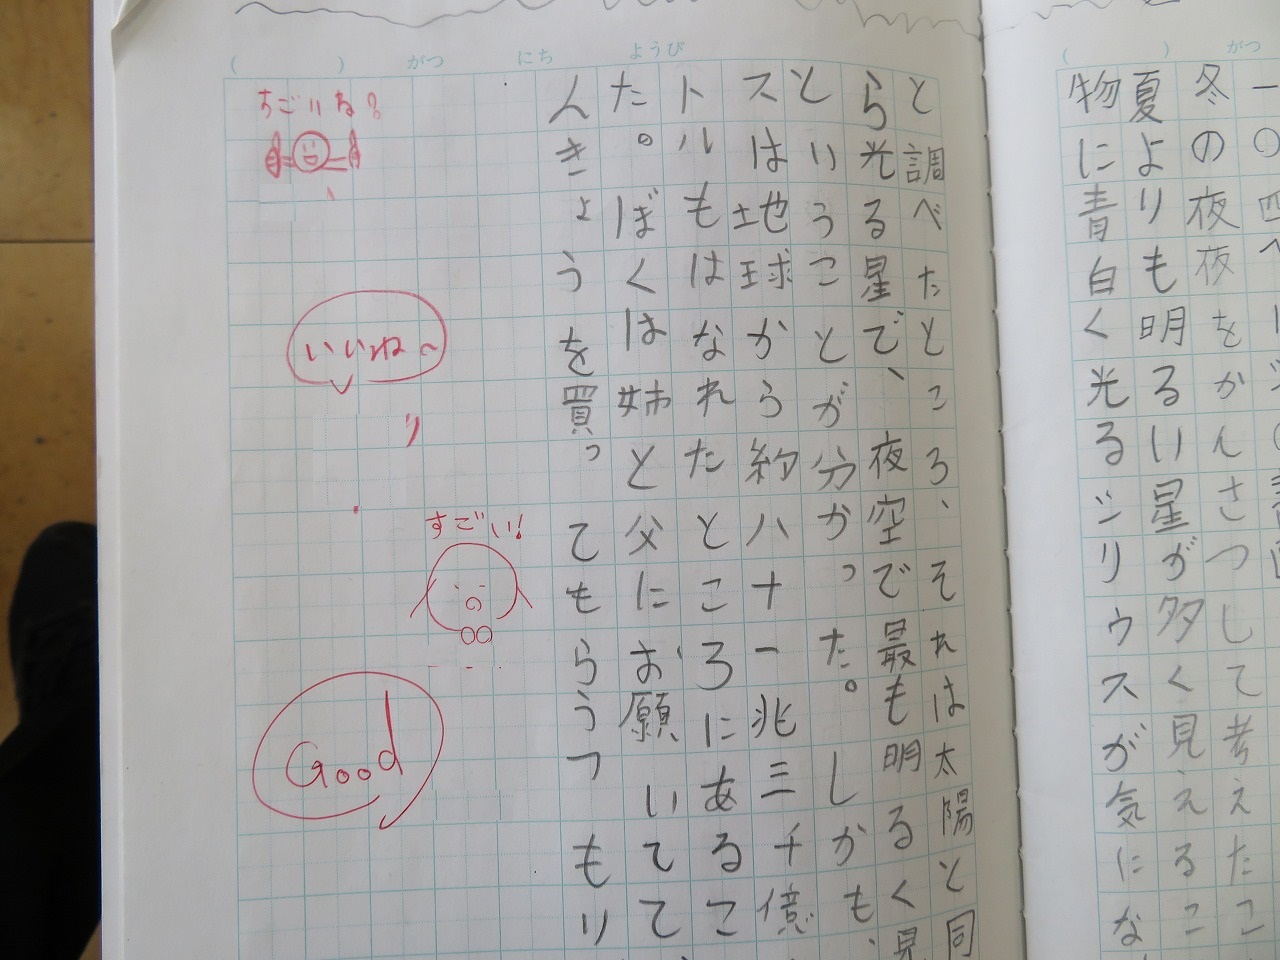 (　　)　がつ
一〇四
冬の夜夜をかんさつして考えたこ
夏よりも明るい星が多く見えるこ
物に青白く光るシリウスが気にな
(　　)　がつ　にち　ようび
と調べたところ、それは太陽と同
ら光る星で、夜空で最も明るく見
ということが分かった。しかも、
スは地球から約八十一兆三千億
トルもはなれたところにあるこ
た。ぼくは姉と父にお願いてて
んきょうを買ってもらうつもり
すごいね
いいね〜
すごい!
Good